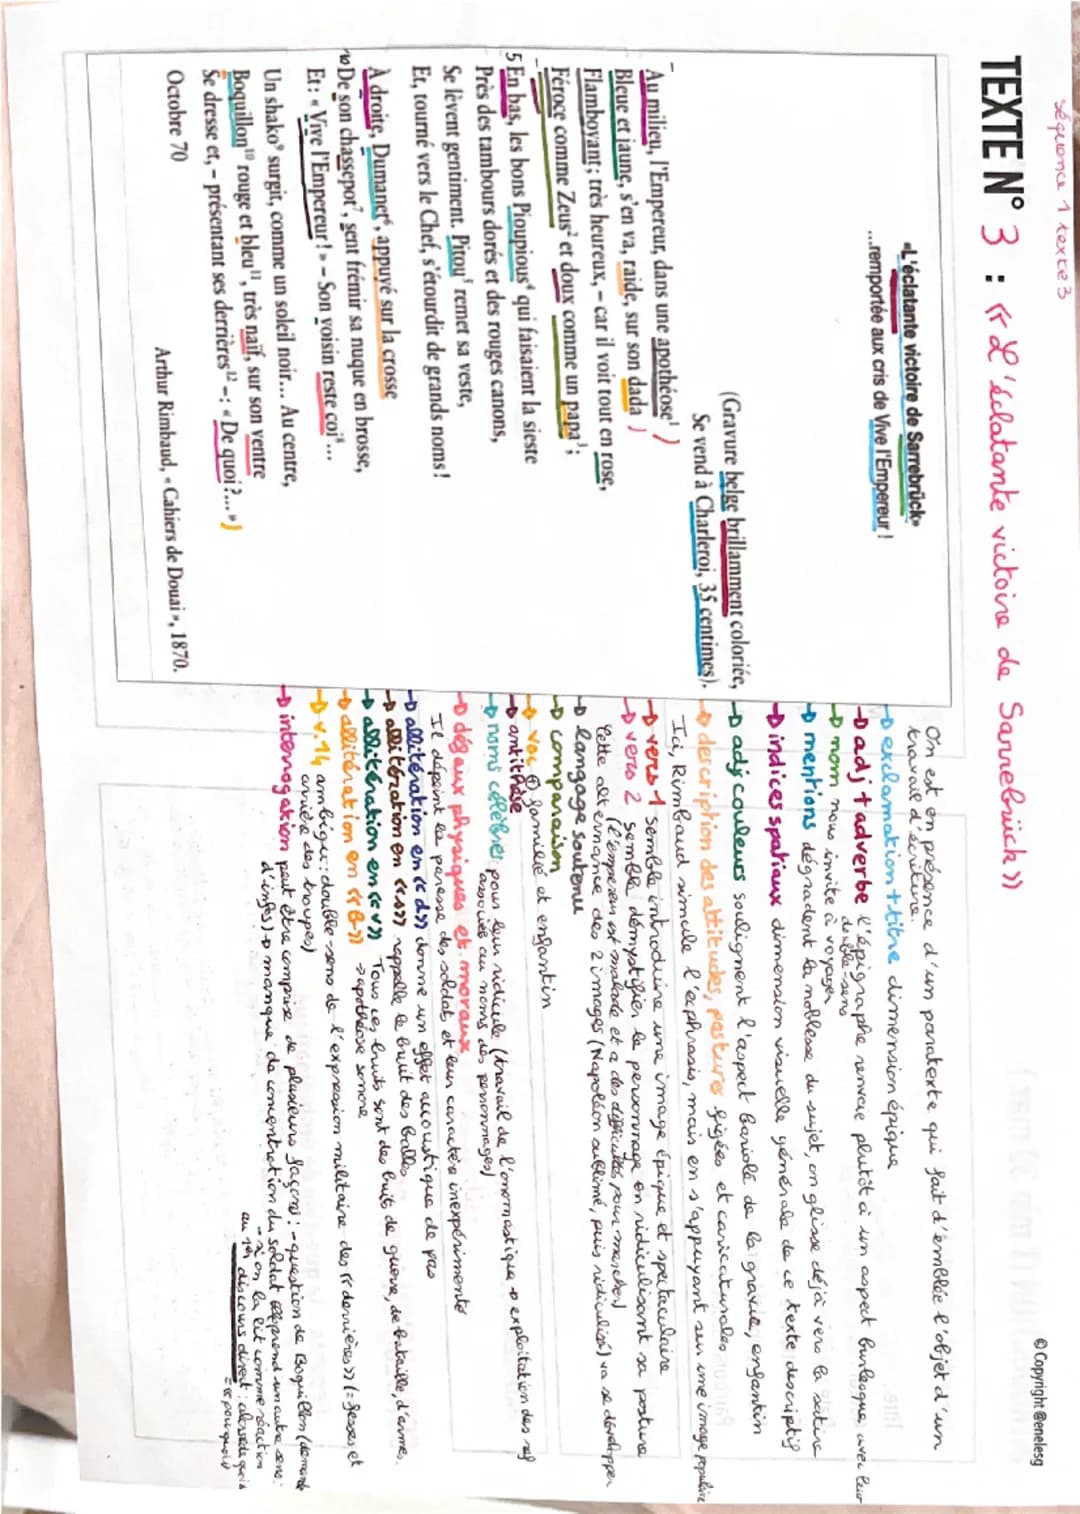 séquence 1 texte 3
© Copyright @enelesg
TEXTE N° 3 : « L'éclatante victoire de Sarrebrück »
«L'éclatante victoire de Sarrebrück»
...remportée aux cris de Vive l'Empereur !
(Gravure belge brillamment coloriée,
Se vend à Charleroi, 35 centimes).
Au milieu, l'Empereur, dans une apothéose¹
Bleue et jaune, s'en va, raide, sur son dada
Flamboyant ; très heureux, – car il voit tout en rose,
Féroce comme Zeus² et doux comme un papa³ ;
5 En bas, les bons Pioupious⁴ qui faisaient la sieste
Près des tambours dorés et des rouges canons,
Se lèvent gentiment. Pitou⁵ remet sa veste,
Et, tourné vers le Chef, s'étourdir de grands noms !
À droite, Dumanet⁶, appuyé sur la crosse
10 De son chassepot⁷, sent frémir sa nuque en brosse,
Et : « Vive l'Empereur ! » – Son voisin reste coi⁸...
Un shako⁹ surgit, comme un soleil noir... Au centre,
Boquillon¹⁰ rouge et bleu¹¹, très naïf, sur son ventre
Se dresse et, – présentant ses derrières¹² – : « De quoi ?... »
Octobre 70
Arthur Rimbaud, « Cahiers de Douai », 1870.
On est en présence d'un paratexte qui fait d'emblée l'objet d'un
travail d'écriture.
→ exclamation + titre dimension épique
→ adj + adverbe l'épigraphe renvoie plutôt à un aspect burlesque, avec leur
double-sens
→ nom nous invite à voyager
→ mentions dégradent la noblesse du sujet, on glisse déjà vers la satire
→ indices spatiaux dimension visuelle générale de ce texte descriptif
→ adj couleurs soulignent l'aspect bariolé de la gravure, enfantin
→ description des attitudes, posture figées et caricaturales
Ici, Rimbaud simule l'ecphrasis, mais en s'appuyant sur une image populaire
→ vers 1 semble introduire une image épique et spectaculaire
→ vers 2 semble démystifier le personnage en ridiculisant sa posture
(l'empereur est malade et a des difficultés pour marcher)
Cette alternance des 2 images (Napoléon sublimé, puis ridiculisé) va se développer
→ langage soutenu
→ comparaison
→ voc ⊕ familié et enfantin
→ antithèse
→ noms célèbres pour leur ridicule (travail de l'onomastique → exploitation des
associés au noms des personnages)
→ dégaux physiques et moraux
Il dépeint la paresse des soldat, et leur caractère inexpérimenté
→ allitération en «d» donne un effet accoustique de pas
→ allitération en «s» rappelle le bruit des balles
→ allitération en «v» Tous ces bruits sont des bruit de guerre, de bataille, d'armes.
→ allitération en «B» → apothéose sonore
→ v.14 ambigu : double-sens de l'expression militaire des «derrières» (= fesses et
arrière des troupes)
→ interrogation peut être comprise de plusieurs façons : - question de Boquillon (demande
d'infos) → manque de concentration du soldat
- si on la lit comme réaction
au 1er discours direct :
= « pourquoi »